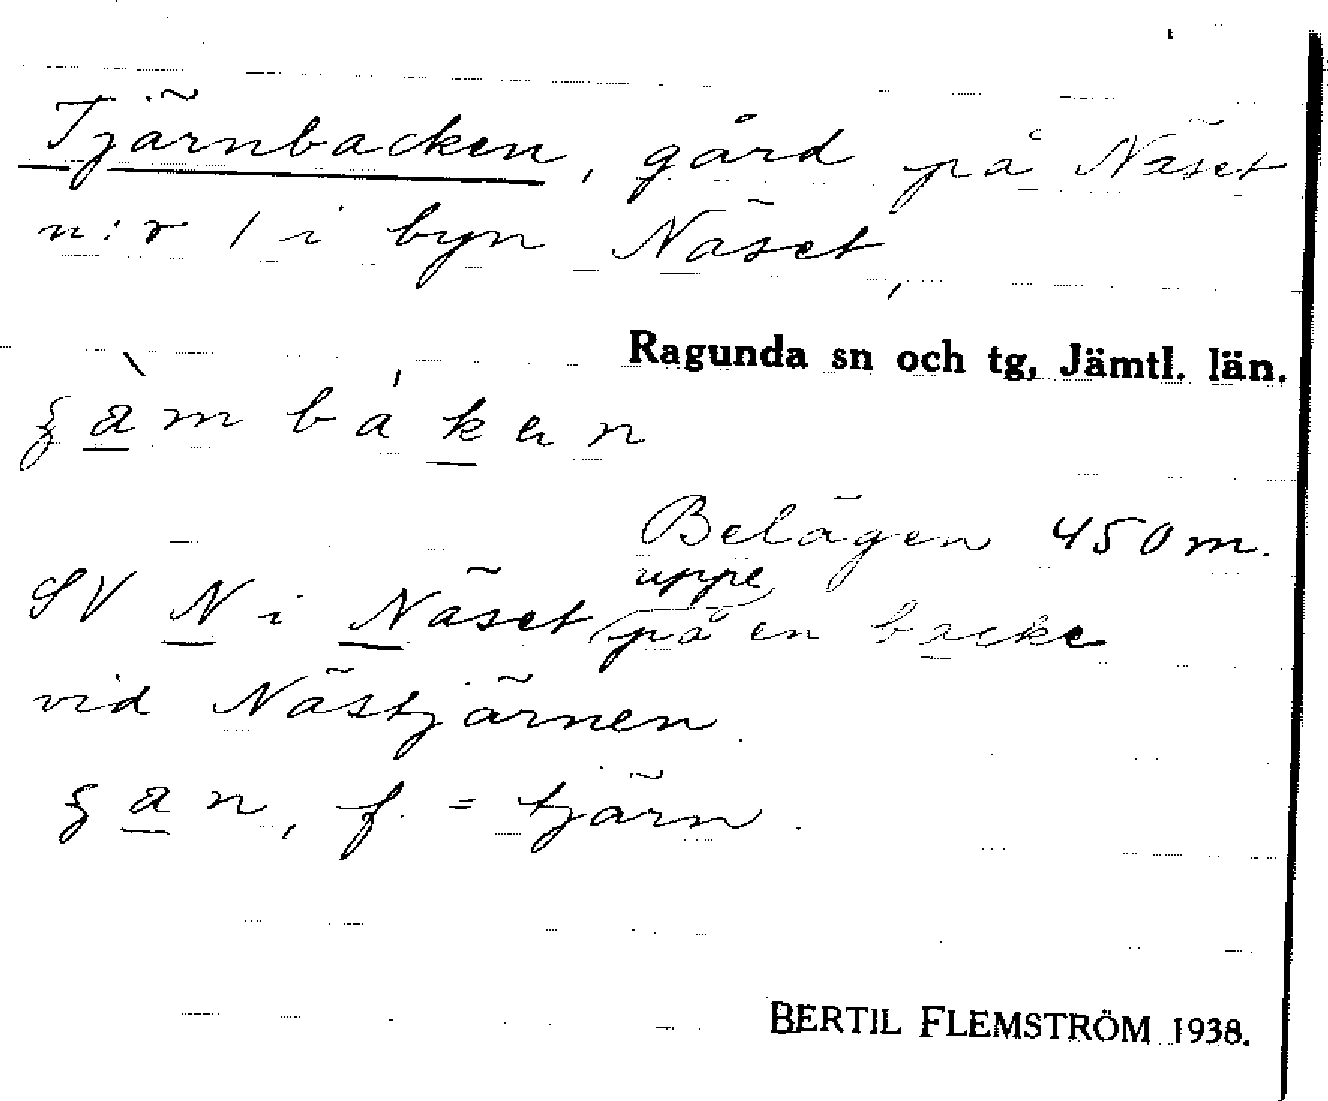 Tjärnbacken, gård på Näset
n:r 1 i byn Näset,
Ragunda sn och tg, Jämtl. län.
Belägen 450 m.
SV N i Näset uppe på en backe
vid Nästjärnen.
f. = tjärn.
BERTIL FLEMSTRÖM 1938.